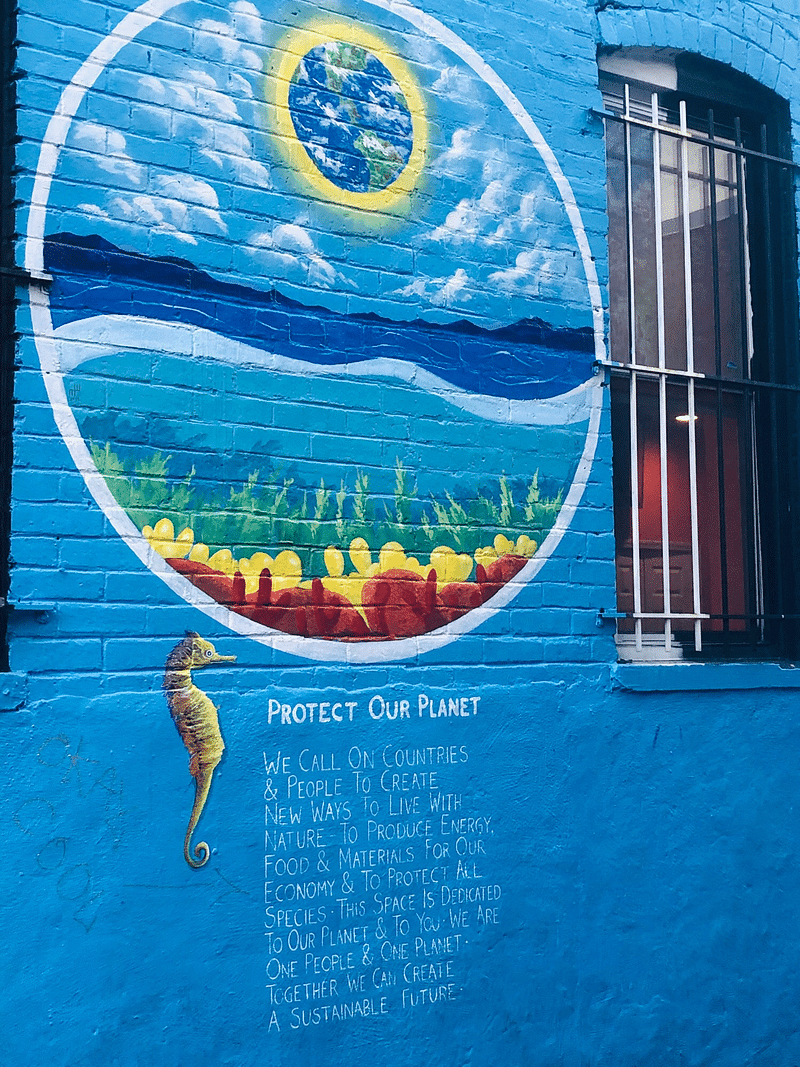 PROTECT OUR PLANET
WE CALL ON COUNTRIES
& PEOPLE TO CREATE
NEW WAYS TO LIVE WITH
NATURE - TO PRODUCE ENERGY,
FOOD & MATERIALS FOR OUR
ECONOMY & TO PROTECT ALL
SPECIES · THIS SPACE IS DEDICATED
TO OUR PLANET & TO YOU · WE ARE
ONE PEOPLE & ONE PLANET ·
TOGETHER WE CAN CREATE
A SUSTAINABLE FUTURE ·